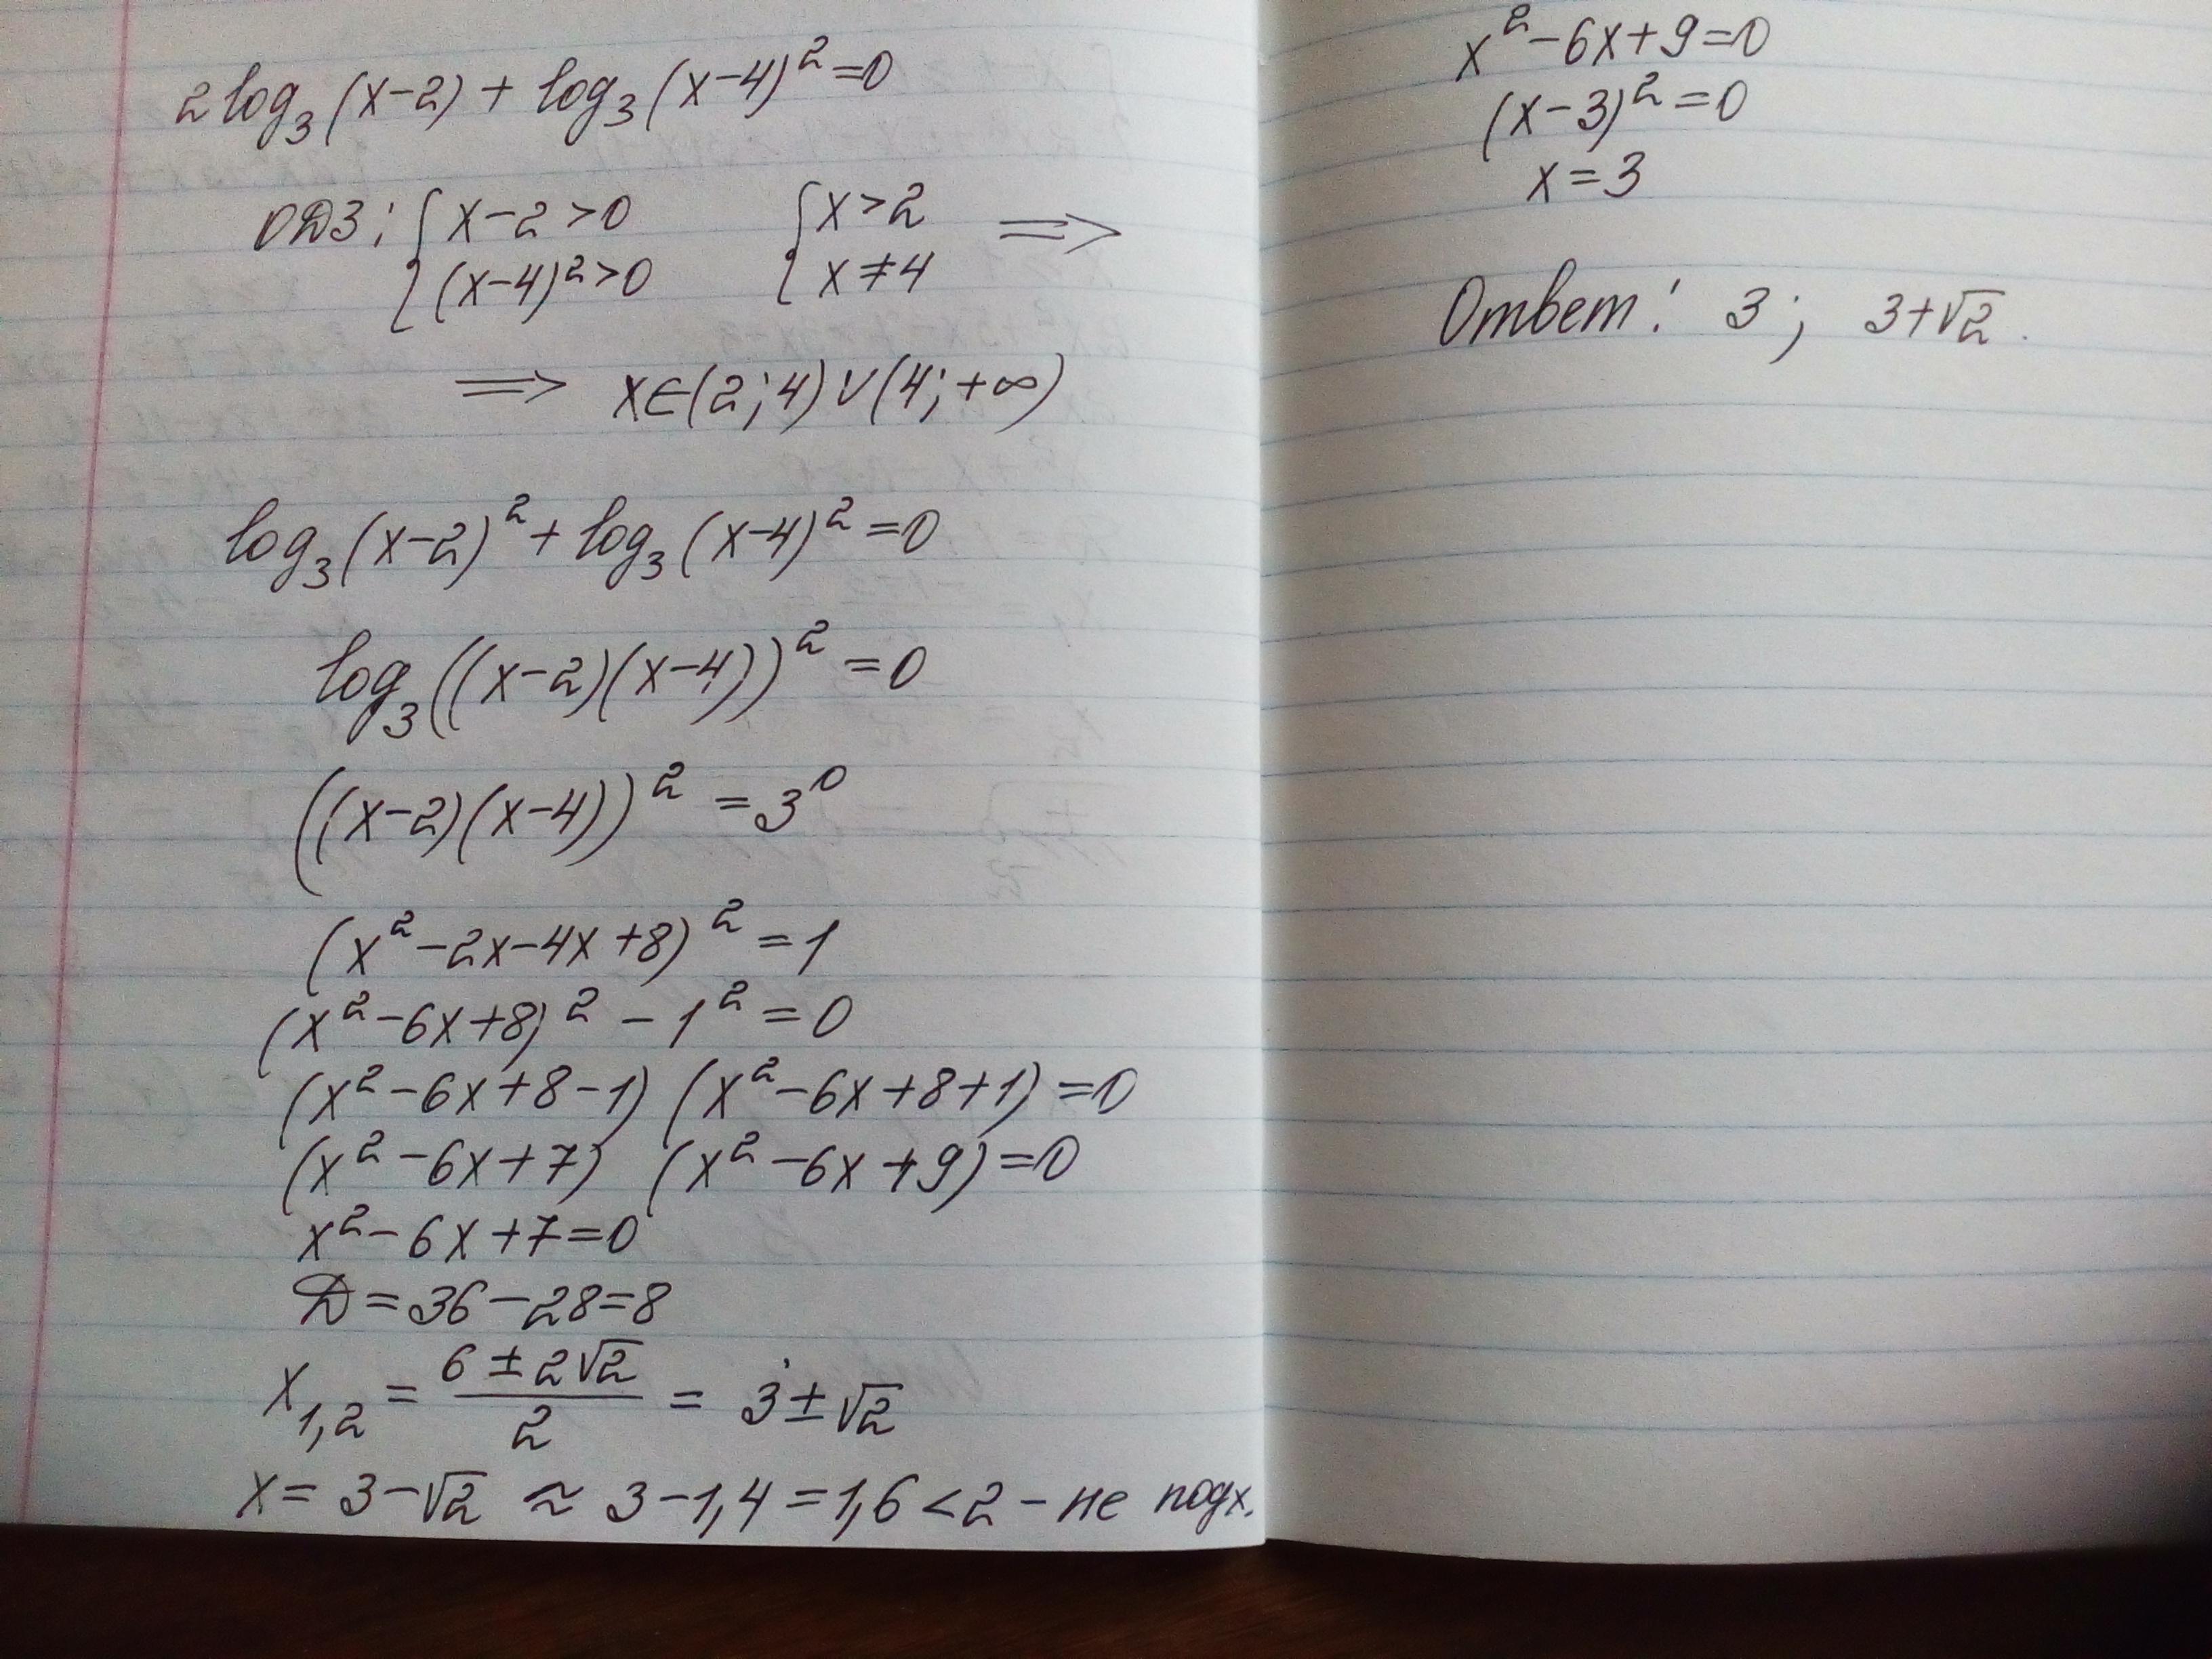 2log₃(x-2) + log₃(x-4)² = 0
ОДЗ: { x-2 > 0 { x > 2 ⟹
{ (x-4)² > 0 { x ≠ 4
⟹ x ∈ (2; 4) ∨ (4; +∞)
log₃(x-2)² + log₃(x-4)² = 0
log₃((x-2)(x-4))² = 0
((x-2)(x-4))² = 3⁰
(x² - 2x - 4x + 8)² = 1
(x² - 6x + 8)² - 1² = 0
(x² - 6x + 8 - 1) (x² - 6x + 8 + 1) = 0
(x² - 6x + 7) (x² - 6x + 9) = 0
x² - 6x + 7 = 0
Д = 36 - 28 = 8
x₁,₂ = (6 ± 2√2)/2 = 3 ± √2
x = 3 - √2 ≈ 3 - 1,4 = 1,6 < 2 - не подх.
x² - 6x + 9 = 0
(x - 3)² = 0
x = 3
Ответ: 3; 3 + √2.